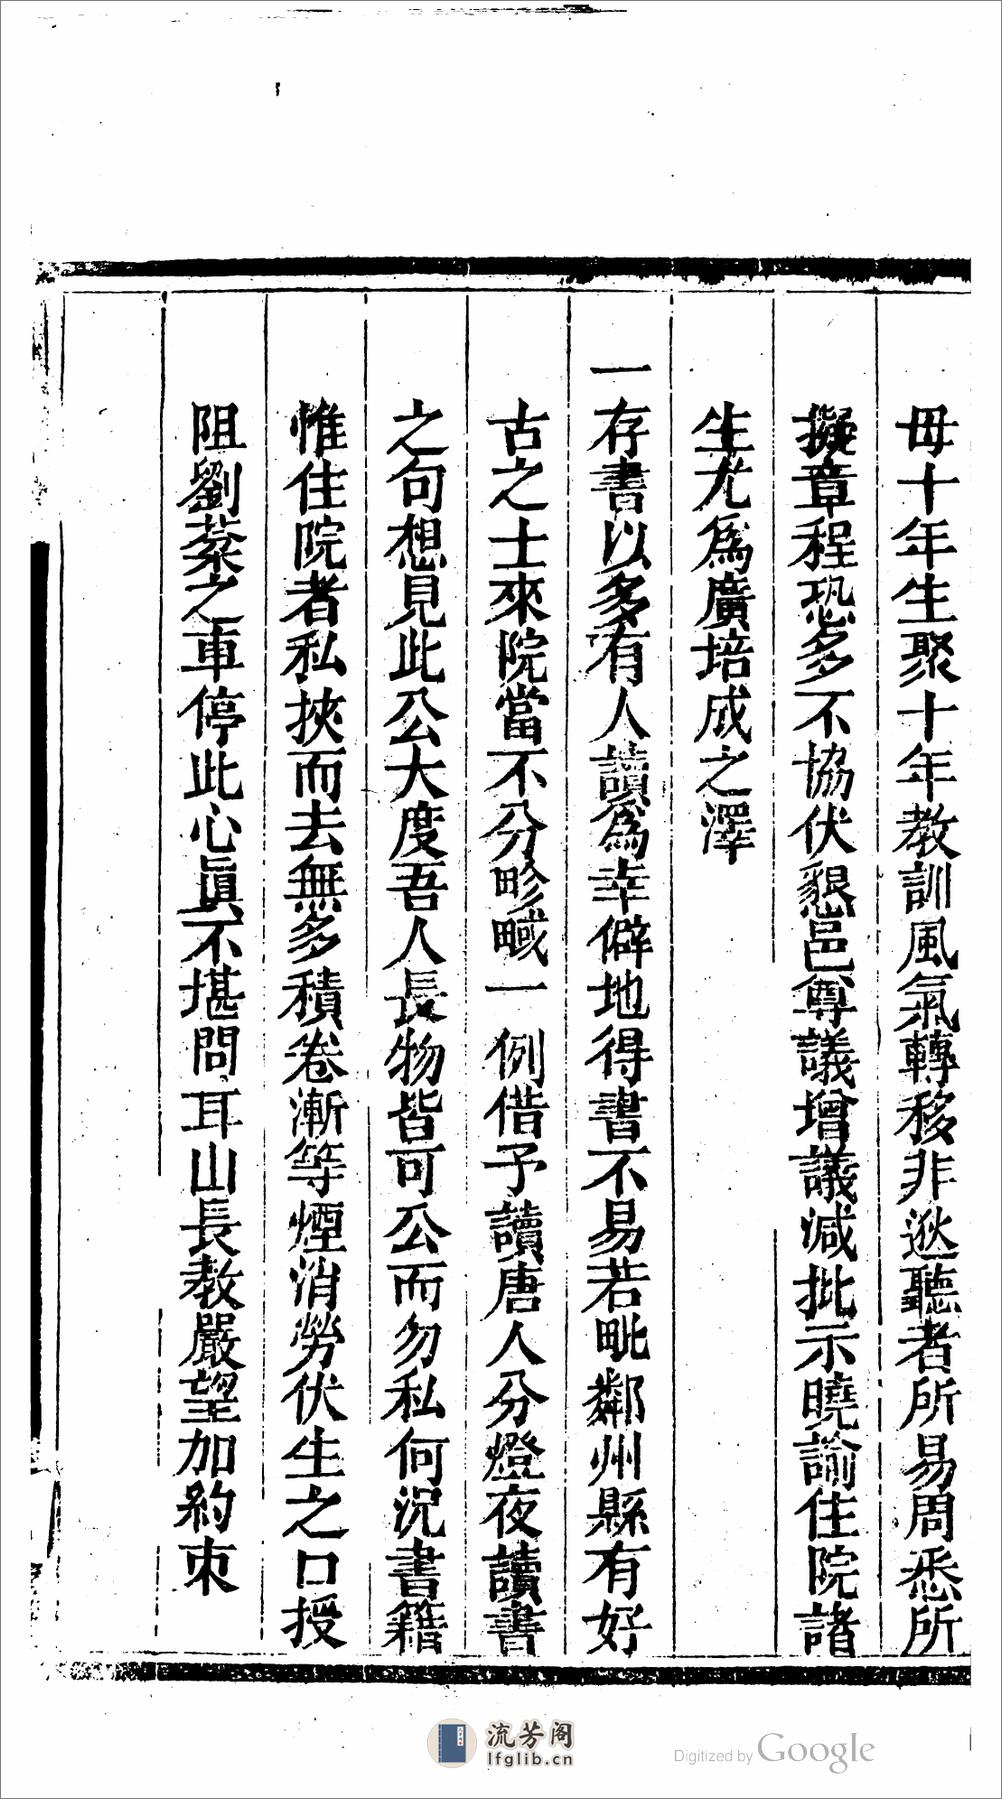 毋十年生聚十年教訓風氣轉移非逖聽者所易周悉所
擬章程恐多不協伏懇邑尊議增議減批示曉諭住院諸
生尤爲廣培成之澤
一存書以多有人讀爲幸僻地得書不易若毗鄰州縣有好
古之士來院當不分畛域一例借予讀唐人分燈夜讀書
之句想見此公大度吾人長物皆可公而勿私何況書籍
惟住院者私挾而去無多積卷漸等煙消勞伏生之口授
阻劉棻之車停此心眞不堪問耳山長教嚴望加約束
流芳阁
lfglib.cn
Digitized by Google